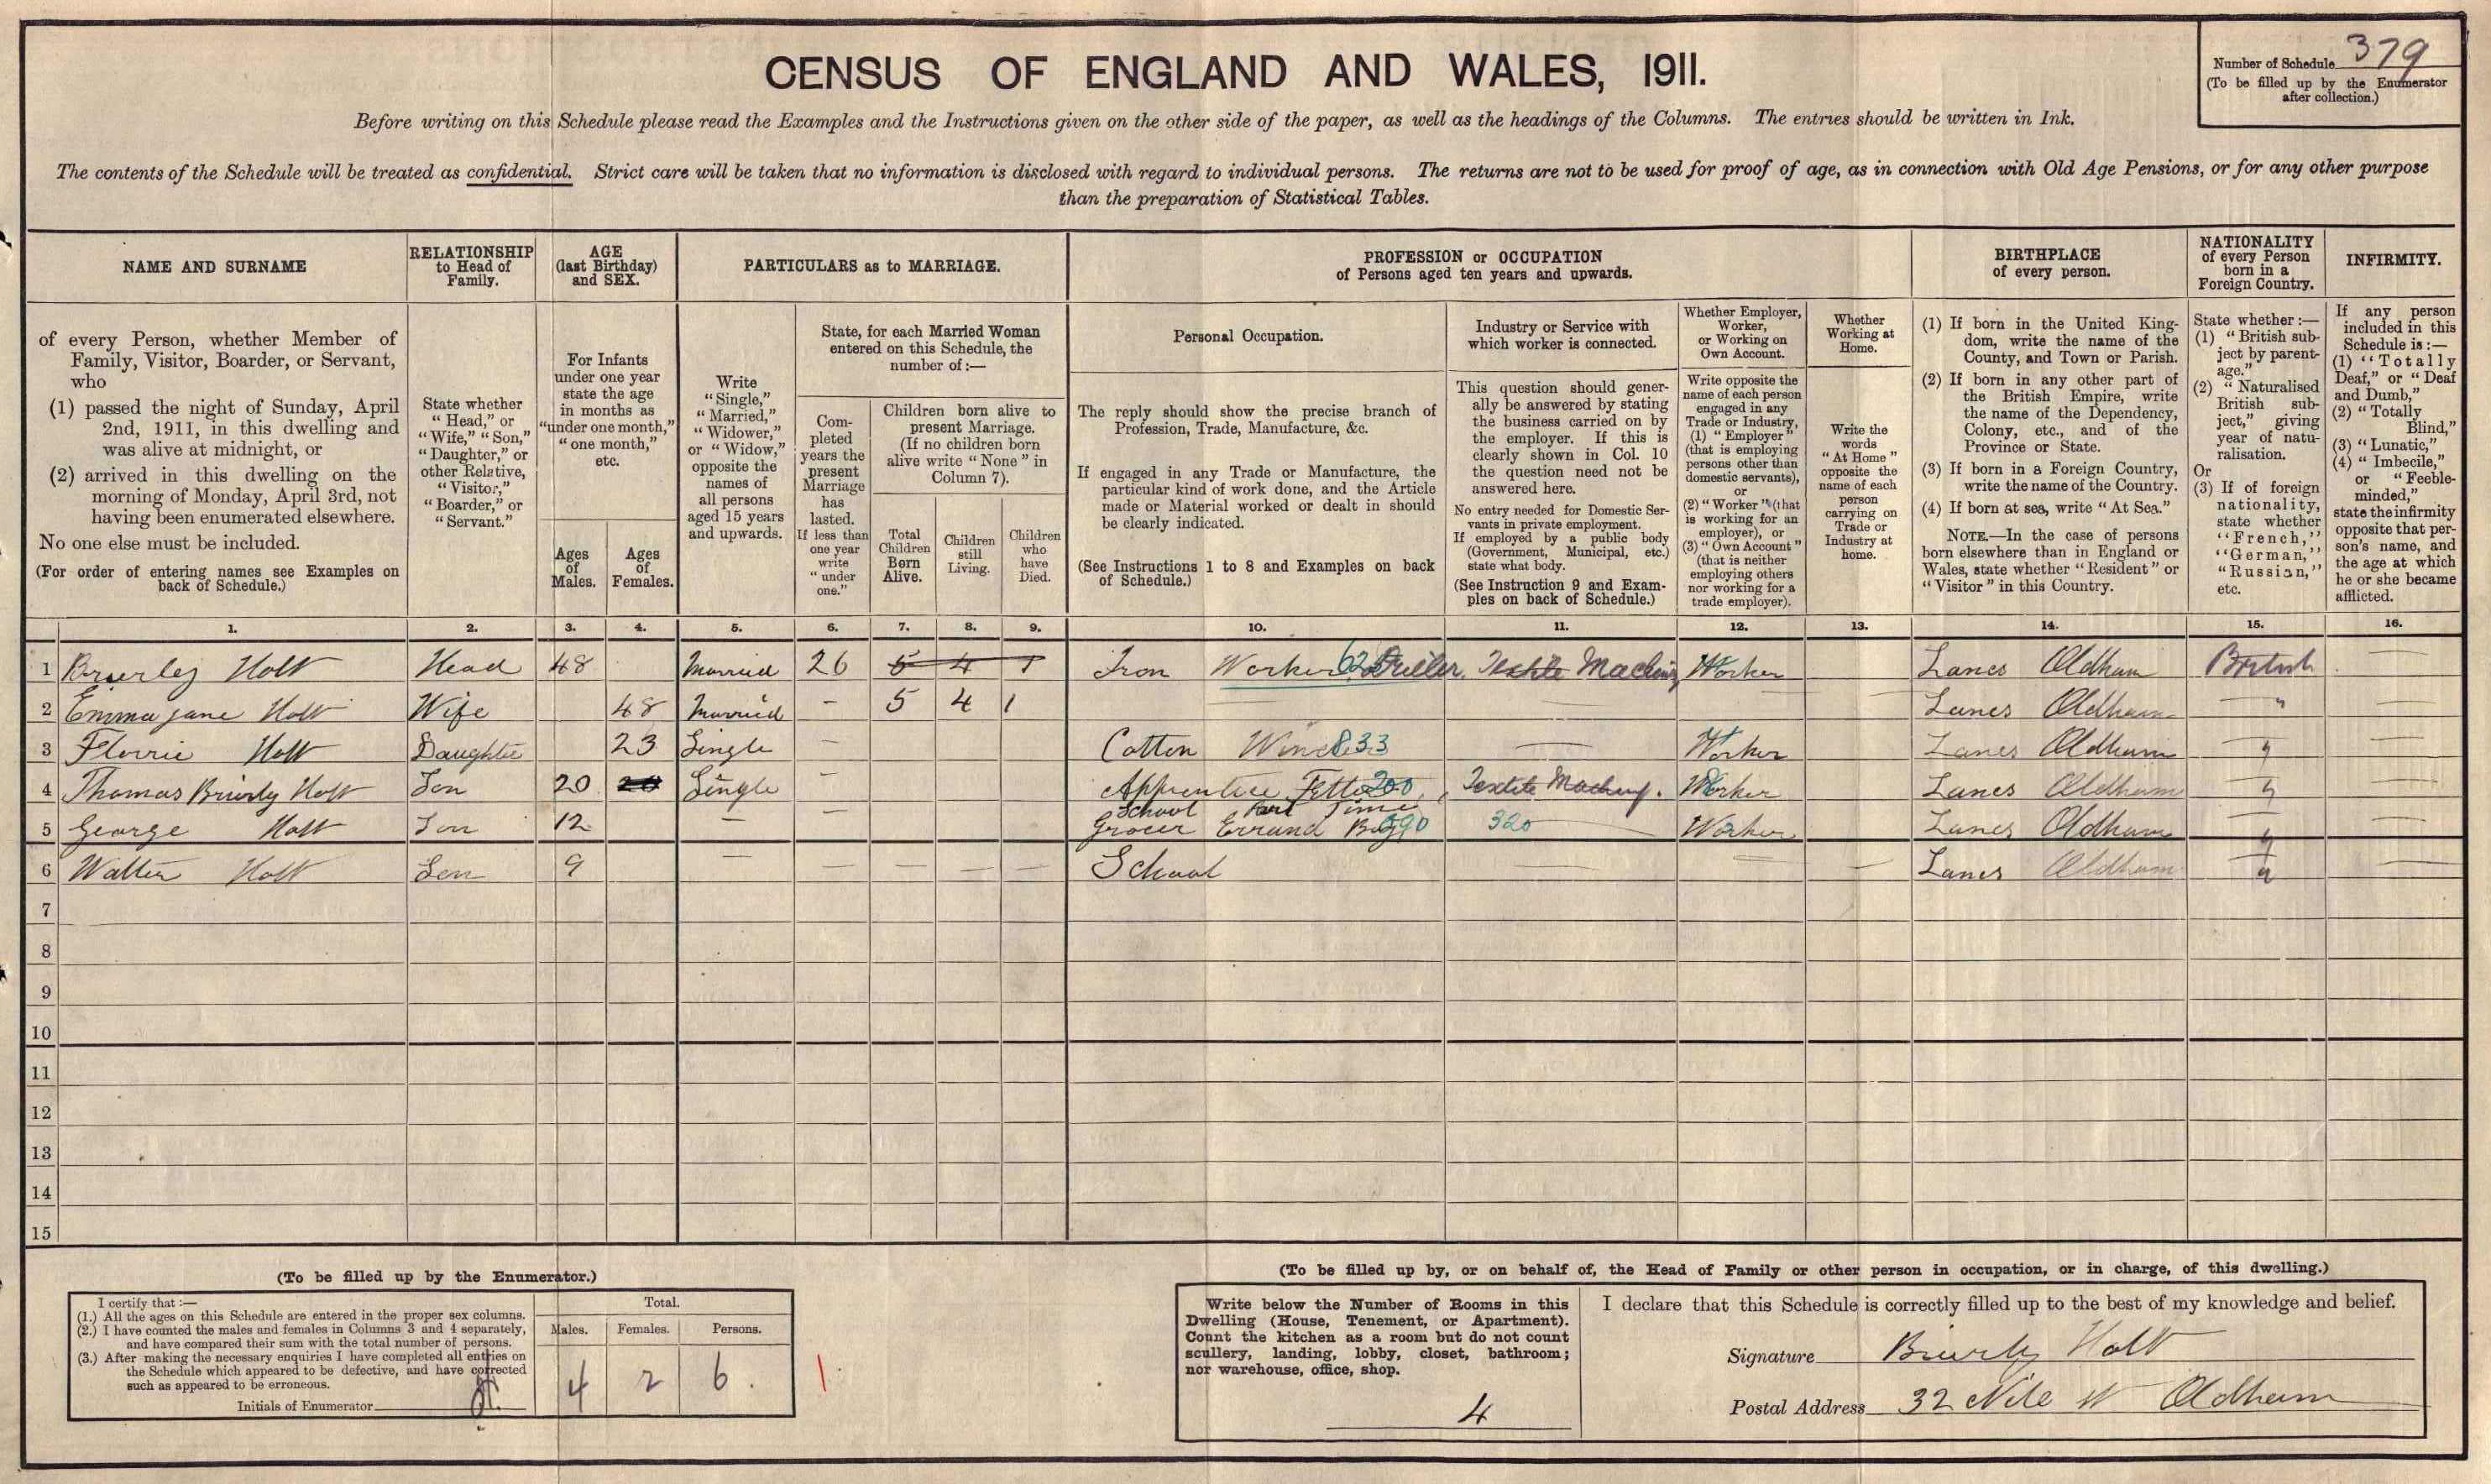 CENSUS OF ENGLAND AND WALES, 1911.
Number of Schedule 379
(To be filled up by the Enumerator
after collection.)
Before writing on this Schedule please read the Examples and the Instructions given on the other side of the paper, as well as the headings of the Columns. The entries should be written in Ink.
The contents of the Schedule will be treated as confidential. Strict care will be taken that no information is disclosed with regard to individual persons. The returns are not to be used for proof of age, as in connection with Old Age Pensions, or for any other purpose
than the preparation of Statistical Tables.
NAME AND SURNAME
RELATIONSHIP
to Head of
Family.
AGE
(last Birthday)
and SEX.
PARTICULARS as to MARRIAGE.
PROFESSION or OCCUPATION
of Persons aged ten years and upwards.
BIRTHPLACE
of every person.
NATIONALITY
of every Person
born in a
Foreign Country.
INFIRMITY.
of every Person, whether Member of
Family, Visitor, Boarder, or Servant,
who
(1) passed the night of Sunday, April
2nd, 1911, in this dwelling and
was alive at midnight, or
(2) arrived in this dwelling on the
morning of Monday, April 3rd, not
having been enumerated elsewhere.
No one else must be included.
(For order of entering names see Examples on
back of Schedule.)
State whether
"Head," or
"Wife," "Son,"
"Daughter," or
other Relative,
"Visitor,"
"Boarder," or
"Servant."
For Infants
under one year
state the age
in months as
"under one month,"
"one month,"
etc.
Ages
of
Males.
Ages
of
Females.
Write
"Single,"
"Married,"
"Widower,"
or "Widow,"
opposite the
names of
all persons
aged 15 years
and upwards.
State, for each Married Woman
entered on this Schedule, the
number of:—
Com-
pleted
years the
present
Marriage
has
lasted.
If less than
one year
write
"under
one."
Children born alive to
present Marriage.
(If no children born
alive write "None" in
Column 7).
Total
Children
Born
Alive.
Children
still
Living.
Children
who
have
Died.
Personal Occupation.
The reply should show the precise branch of
Profession, Trade, Manufacture, &c.
If engaged in any Trade or Manufacture, the
particular kind of work done, and the Article
made or Material worked or dealt in should
be clearly indicated.
(See Instructions 1 to 8 and Examples on back
of Schedule.)
Industry or Service with
which worker is connected.
This question should gener-
ally be answered by stating
the business carried on by
the employer. If this is
clearly shown in Col. 10
the question need not be
answered here.
No entry needed for Domestic Ser-
vants in private employment.
If employed by a public body
(Government, Municipal, etc.)
state what body.
(See Instruction 9 and Exam-
ples on back of Schedule.)
Whether Employer,
Worker,
or Working on
Own Account.
Write opposite the
name of each person
engaged in any
Trade or Industry,
(1) "Employer"
(that is employing
persons other than
domestic servants),
or
(2) "Worker" (that
is working for an
employer), or
(3) "Own Account"
(that is neither
employing others
nor working for a
trade employer).
Whether
Working at
Home.
Write the
words
"At Home"
opposite the
name of each
person
carrying on
Trade or
Industry at
home.
(1) If born in the United King-
dom, write the name of the
County, and Town or Parish.
(2) If born in any other part of
the British Empire, write
the name of the Dependency,
Colony, etc., and of the
Province or State.
(3) If born in a Foreign Country,
write the name of the Country.
(4) If born at sea, write "At Sea."
NOTE.—In the case of persons
born elsewhere than in England or
Wales, state whether "Resident" or
"Visitor" in this Country.
State whether:—
(1) "British sub-
ject by parent-
age."
(2) "Naturalised
British sub-
ject," giving
year of natu-
ralisation.
Or
(3) If of foreign
nationality,
state whether
"French,"
"German,"
"Russian,"
etc.
If any person
included in this
Schedule is:—
(1) "Totally
Deaf," or "Deaf
and Dumb,"
(2) "Totally
Blind,"
(3) "Lunatic,"
(4) "Imbecile,"
or "Feeble-
minded,"
state the infirmity
opposite that per-
son's name, and
the age at which
he or she became
afflicted.
1. 2. 3. 4. 5. 6. 7. 8. 9. 10. 11. 12. 13. 14. 15. 16.
1 Brierley Holt Head 48 Married 26 5 4 1 Iron Worker Driller. Textile Worker Lancs Oldham British —
2 Emma Jane Holt Wife 48 Married – 5 4 1 — — Lancs Oldham " —
3 Florrie Holt Daughter 23 Single – Cotton 833 — Worker Lancs Oldham " —
4 Thomas Brierly Holt Son 20 Single – Apprentice 200 Textile Worker Lancs Oldham " —
School Part Time
5 George Holt Son 12 – – Grocer Errand Boy 320 — Worker Lancs Oldham " —
6 Walter Holt Son 9 – – – – – School — — — Lancs Oldham " —
7
8
9
10
11
12
13
14
15
(To be filled up by the Enumerator.)
I certify that:—
(1.) All the ages on this Schedule are entered in the proper sex columns.
(2.) I have counted the males and females in Columns 3 and 4 separately,
and have compared their sum with the total number of persons.
(3.) After making the necessary enquiries I have completed all entries on
the Schedule which appeared to be defective, and have corrected
such as appeared to be erroneous.
Initials of Enumerator
Total.
Males. Females. Persons.
4 2 6.
(To be filled up by, or on behalf of, the Head of Family or other person in occupation, or in charge, of this dwelling.)
Write below the Number of Rooms in this
Dwelling (House, Tenement, or Apartment).
Count the kitchen as a room but do not count
scullery, landing, lobby, closet, bathroom;
nor warehouse, office, shop.
4
I declare that this Schedule is correctly filled up to the best of my knowledge and belief.
Signature Brierly Holt
Postal Address 32 Nile St Oldham